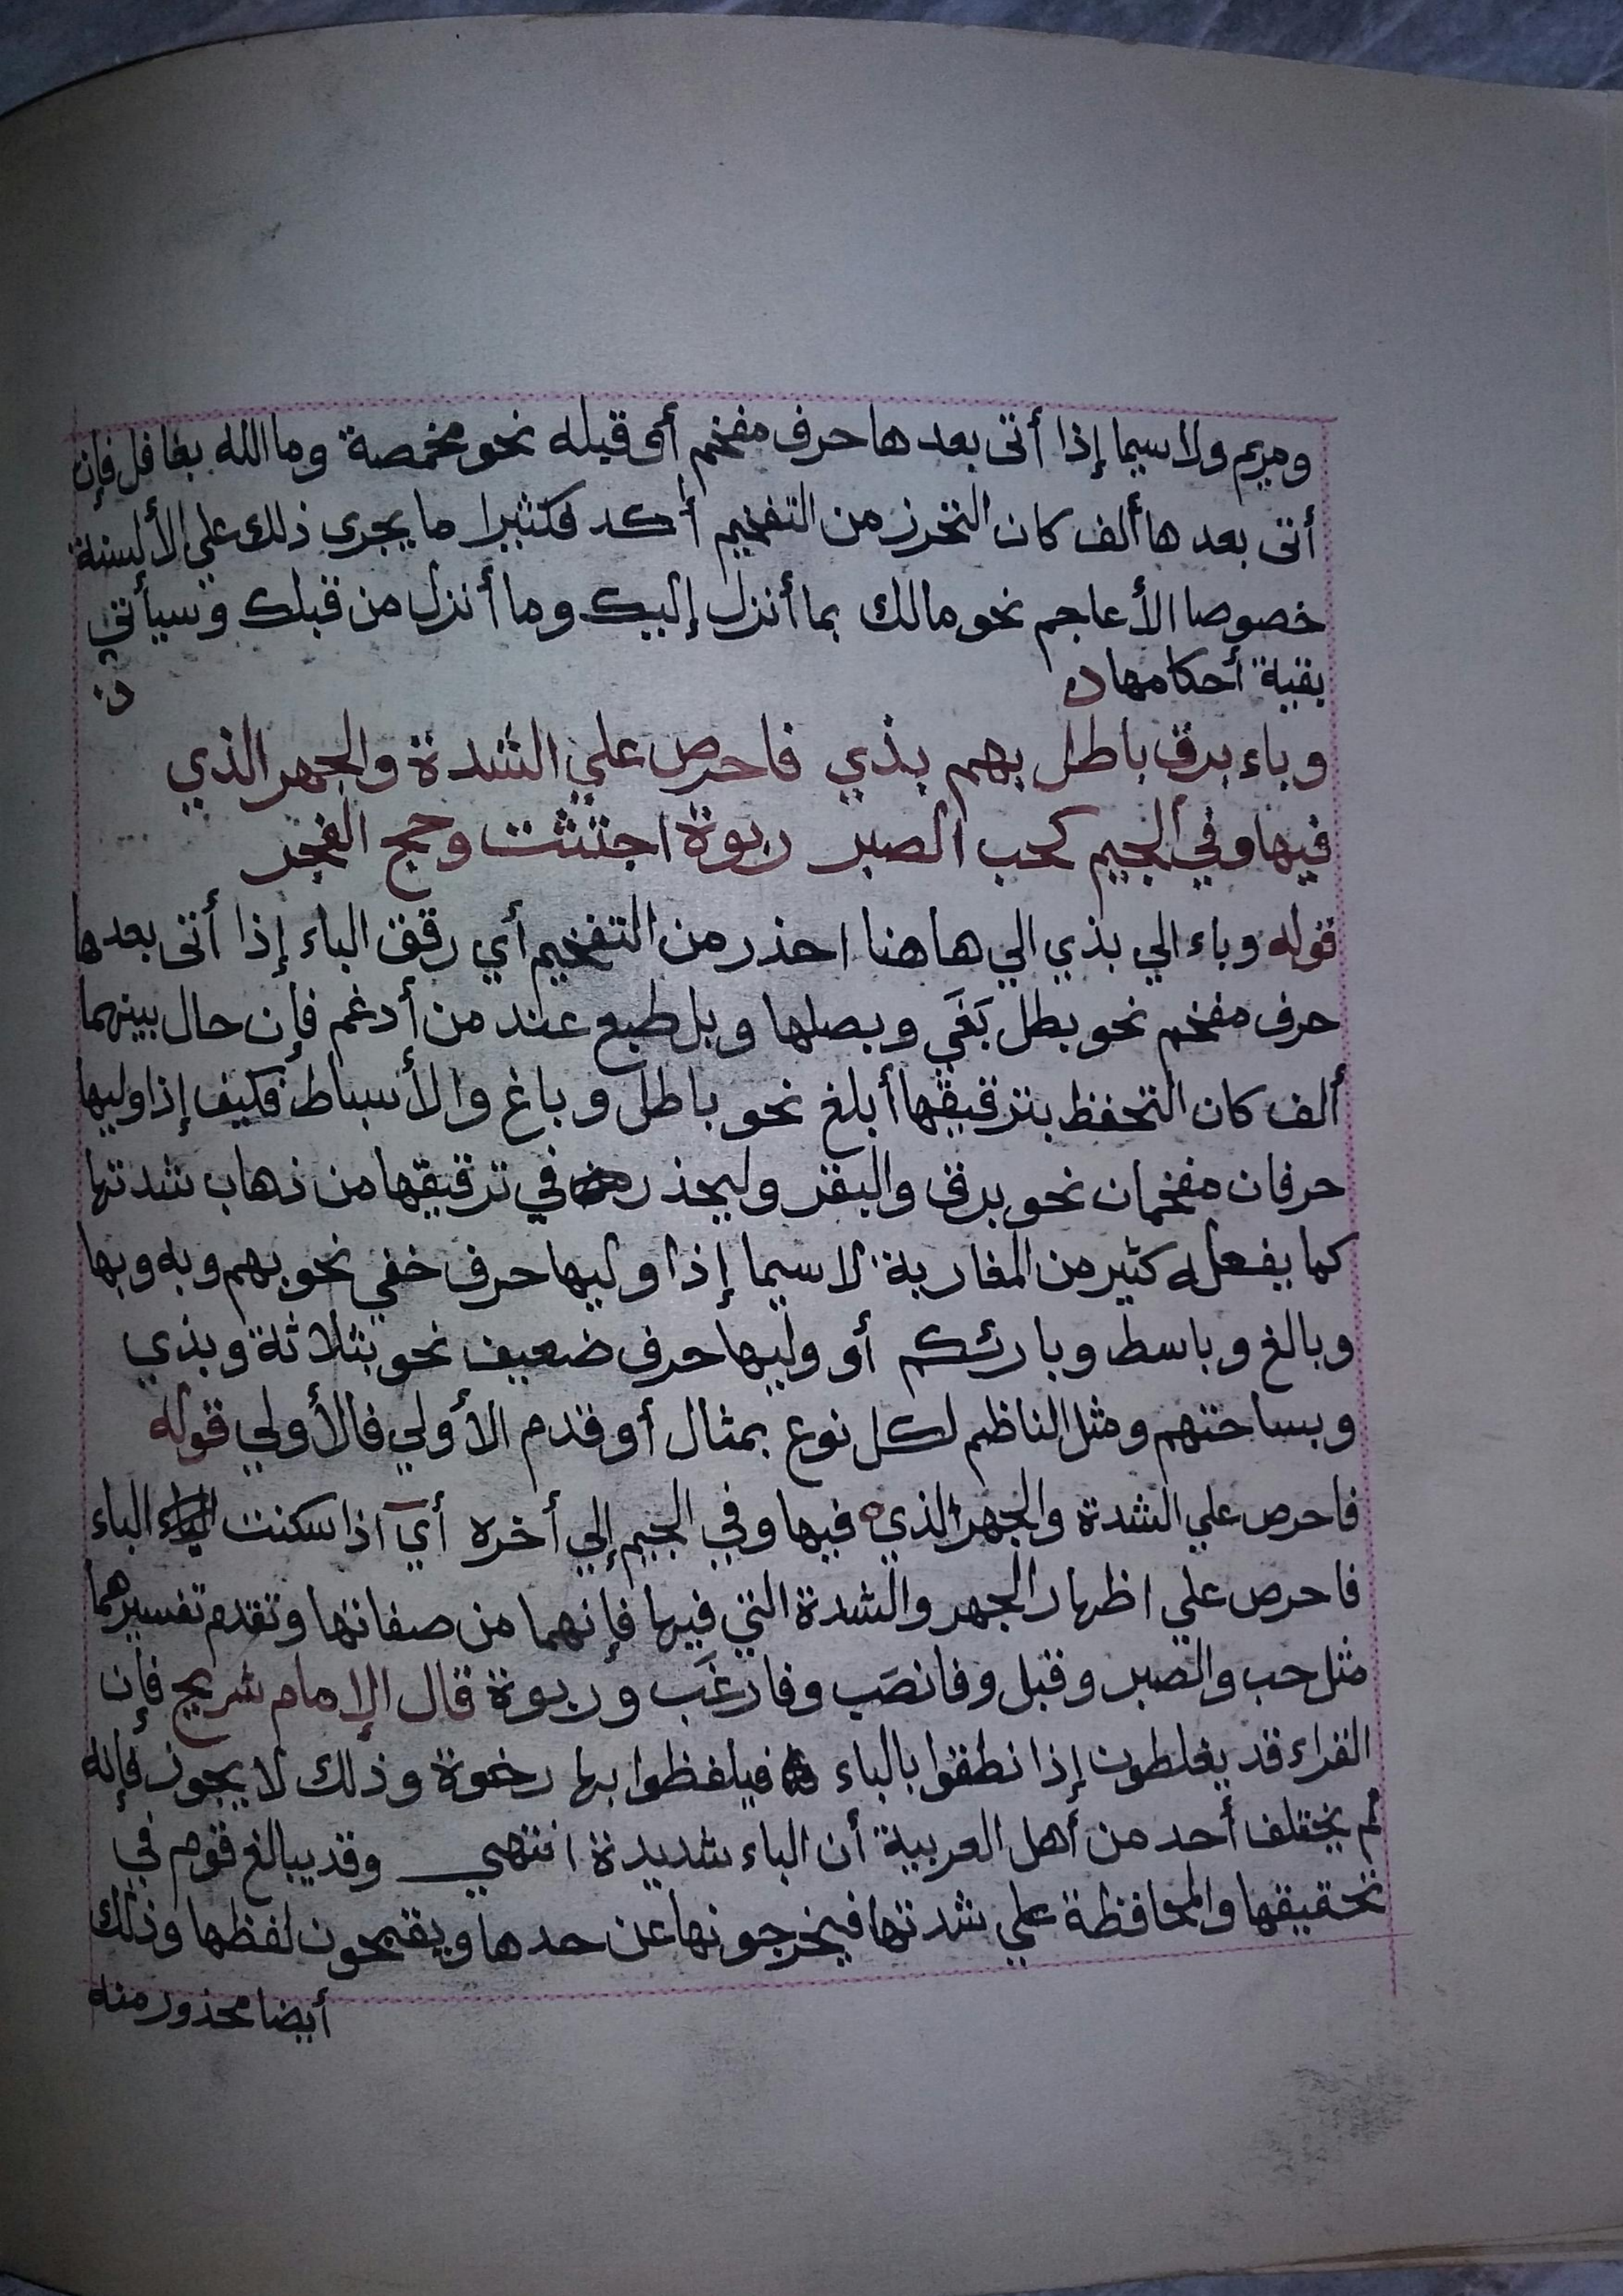 ومريم ولا سيما إذا أتى بعدها حرف مفخم أو قبله نحو مخمصة وما الله بغافل فإن
أتى بعدها ألف كان التحرز من التفخيم أكد فكثيرا ما يجري ذلك علي الألسنة
خصوصا الأعاجم نحو مالك بما أنزل إليك وما أنزل من قبلك وسيأتي
بقية أحكامها
وباء برق باطل بهم بذي فاحرص علي الشدة والجهر الذي
فيها وفي الجيم كحب الصبر ربوة اجتثت وحج الفجر
قوله وباء الي بذي الي هاهنا احذر من التفخيم أي رقق الباء إذا أتى بعدها
حرف مفخم نحو بطل بَغَي وبصلها وبل طبع عند من أدغم فإن حال بينهما
ألف كان التحفظ بترقيقها أبلغ نحو باطل وباغ والأسباط فكيف إذا وليها
حرفان مفخمان نحو برق والبقر وليحذر في ترقيقها من ذهاب شدتها
كما يفعله كثير من المغاربة لا سيما إذا وليها حرف خفي نحو بهم وبه وبها
وبالغ وباسط وبارئكم أو وليها حرف ضعيف نحو بثلاثة وبذي
وبساحتهم ومثل الناظم لكل نوع بمثال أو قدم الأولي فالأولي قوله
فاحرص علي الشدة والجهر الذي فيها وفي الجيم إلي أخره أي اذا سكنت الباء
فاحرص علي اظهار الجهر والشدة التي فيها فإنهما من صفاتها وتقدم تفسيرهما
مثل حب والصبر وقبل وفانصَب وفارغَب وربوة قال الإمام شريح فإن
القراء قد يغلطون إذا نطقوا بالباء فيلفظوا بها رخوة وذلك لا يجوز فإنه
لم يختلف أحد من أهل العربية أن الباء شديدة انتهي وقد يبالغ قوم في
تحقيقها والمحافظة علي شدتها فيخرجونها عن حدها ويقبحون لفظها وذلك
أيضا محذور منه